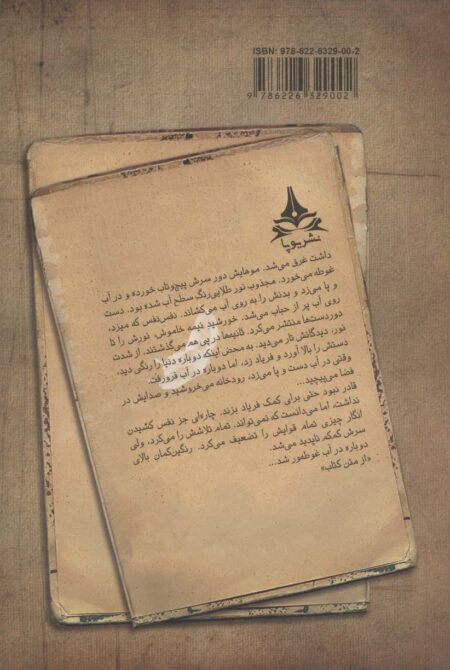 ISBN: 978-622-6329-00-2
9 786226 329002
نشر پویا
داشت غرق می‌شد. موهایش دور سرش پیچ‌وتاب خورده و در آب
غوطه می‌خورد. مجذوب نور طلایی‌رنگ سطح آب شده بود. دست
و پا می‌زد و بدنش را به روی آب می‌کشاند. نفس‌نفس که میزد،
روی آب پر از حباب می‌شد. خورشید نیمه خاموش، نورش را تا
دوردست‌ها منتشر می‌کرد. ثانیه‌ها در پی هم می‌گذشتند. از شدت
نور، دیدگانش تار می‌دید. به محض اینکه دوباره دنیا را رنگی دید،
دستش را بالا آورد و فریاد زد، اما دوباره در آب فرو رفت.
وقتی در آب دست و پا می‌زد، رودخانه می‌خروشید و صدایش در
فضا می‌پیچید...
قادر نبود حتی برای کمک فریاد بزند. چاره‌ای جز نفس کشیدن
نداشت، اما می‌دانست که نمی‌تواند. تمام تلاشش را می‌کرد، ولی
انگار چیزی تمام قوایش را تضعیف می‌کرد. رنگین‌کمان بالای
سرش کم‌کم ناپدید می‌شد.
دوباره در آب غوطه‌ور شد...
«از متن کتاب»